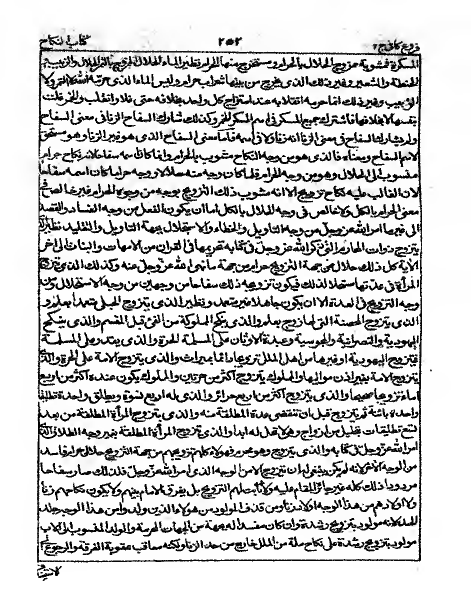 فروع كافي ج٢ ٢٥٢ كتاب النكاح
المسكر فمشوبة ممزوج الحلال بالحرام ومستخرج منها الحرام نظيره الماء الحلال الممزوج بالتمر الحلال والزبيب
والحنطة والشعير وغير ذلك الذي يخرج من بينها شراب حرام وليس الماء الذي حرمه الله ولا التمر ولا
الزبيب وغير ذلك انما حرمه انقلابه عند امتزاج كل واحد بخلافه حتى غلا وانقلب والخمر غلت
بنفسها لا بخلافها فاشترك جميع المسكر في اسم الخمر وكذلك شارك السفاح الزنا في معنى السفاح
ولم يشارك السفاح في معنى الزنا انه زنا ولا في اسمه فاما معنى السفاح الذي هو غير الزنا وهو مستحق
لاسم السفاح ومعناه فالذي هو من وجه النكاح مشوب بالحرام وانما كان سفاحا لانه نكاح حرام
منسوب الى الحلال وهو من وجه الحرام فلما كان وجه منه حلالا ووجه حراما كان اسمه سفاحا
لان الغالب عليه نكاح تزويج الا انه مشوب ذلك التزويج بوجه من وجوه الحرام غير خالص في
معنى الحرام بالكل ولا خالص في وجه الحلال بالكل اما ان يكون الفعل من وجه الفساد والقصد
الى غير ما امر الله عز وجل فيه من وجه التاويل والخطاء والاستحلال بجهة التاويل والتقليد نظير الذي
يتزوج ذوات المحارم التي ذكر الله عز وجل في كتابه تحريمها في القران من الامهات والبنات الى اخر
الاية كل ذلك حلال من جهة التزويج حرام من جهة ما نهى الله عز وجل عنه وكذلك الذي يتزوج
المراة في عدتها مستحلا لذلك فيكون تزويجه ذلك سفاحا من وجهين من وجه الاستحلال ومن
وجه التزويج في العدة الا ان يكون جاهلا غير متعمد لذلك ونظير الذي يتزوج الحبلى متعمدا بعلم و
الذي يتزوج المحصنة التي لها زوج بعلم والذي ينكح المملوكة من الفيء قبل المقسم والذي ينكح
اليهودية والنصرانية والمجوسية وعبدة الاوثان على المسلمة الحرة والذي يقدر على المسلمة
فيتزوج اليهودية او غيرها من اهل الملل تزويجا دائما بميراث والذي يتزوج الامة على الحرة والذي
يتزوج الامة بغير اذن مواليها والمملوك يتزوج اكثر من حرتين والمملوك يكون عنده اكثر من اربع
اماء تزويجا صحيحا والذي يتزوج اكثر من اربع حرائر والذي له اربع نسوة فيطلق واحدة تطليقة
واحدة بائنة ثم يتزوج قبل ان تنقضي عدة المطلقة منه والذي يتزوج المراة المطلقة من بعد
تسع تطليقات بتحليل من ازواج وهي لا تحل له ابدا والذي يتزوج المراة المطلقة بغير وجه الطلاق الذي
امر الله عز وجل به في كتابه والذي يتزوج وهو محرم فهؤلاء كلهم تزويجهم من جهة التزويج حلال حرام فاسد
من الوجه الاخر لانه لم يكن ينبغي له ان يتزوج الا من الوجه الذي امر الله عز وجل فلذلك صار سفاحا
مردودا ذلك كله غير جائز المقام عليه ولا ثابت لهم التزويج بل يفرق الامام بينهم ولا يكون نكاحهم زنا
ولا اولادهم من هذا الوجه اولاد زنا ومن قذف المولود من هؤلاء الذين ولدوا من هذا الوجه جلد
الحد لانه مولود بتزويج رشدة وان كان مفسدا له بجهة من الجهات المحرمة والولد منسوب الى الاب
مولود بتزويج رشدة على نكاح ملة من الملل خارج من حد الزنا ولكنه معاقب عقوبة الفرقة والرجوع الى